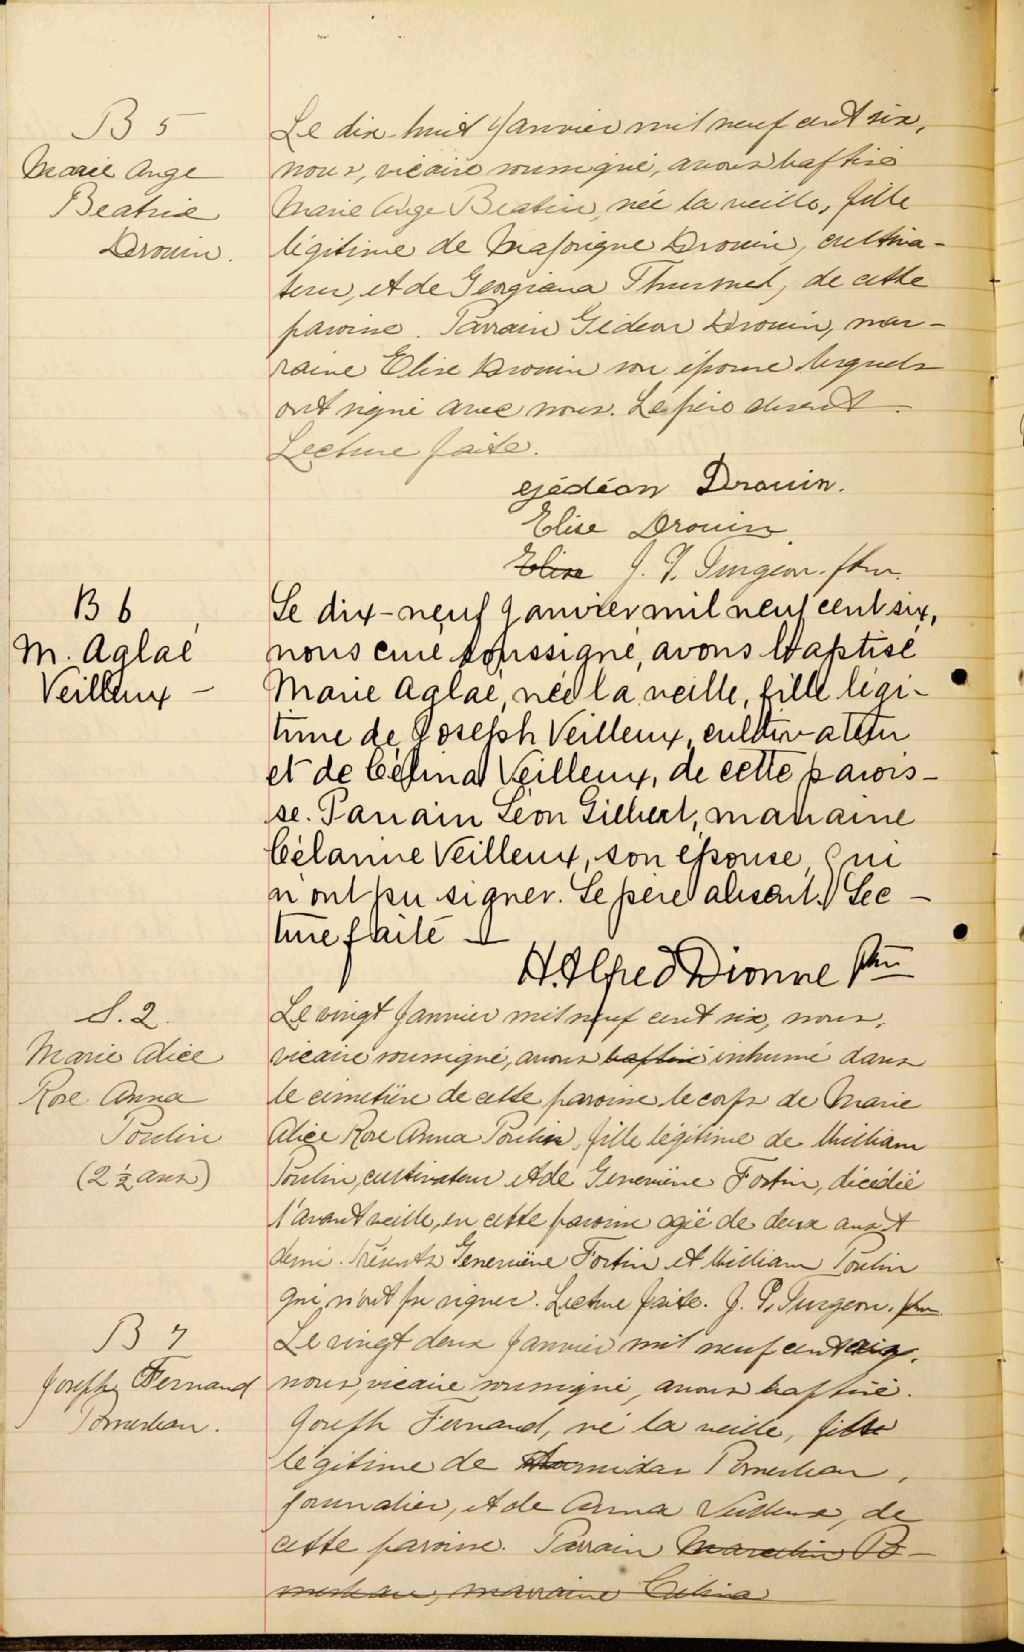 B 5
Marie Ange
Beatrice
Drouin.
Le dix-huit Janvier mil neuf cent six,
nous, vicaire soussigné, avons baptisé
Marie Ange Beatrice, née la veille, fille
légitime de Majorique Drouin, cultiva-
teur, et de Georgiana de cette
paroisse. Parrain Gédéon Drouin, mar-
raine Elise Drouin son épouse lesquels
ont signé avec nous. Le père absent.
Lecture faite.
Gédéon Drouin.
Elise Drouin
Elise J. P. Turgeon. ptre.
B 6
M. Aglaé
Veilleux -
Le dix-neuf Janvier mil neuf cent six,
nous curé soussigné, avons baptisé
Marie Aglaé, née la veille, fille légi-
time de Joseph Veilleux, cultivateur
et de Célina Veilleux, de cette parois-
se. Parrain Léon Gilbert, marraine
Célanire Veilleux, son épouse, qui
n'ont pu signer. Le père absent. Lec-
ture faite -
H. Alfred Dionne Ptre
S. 2.
Marie Alice
Rose Anna
Poulin
(2 ½ ans)
Le vingt Janvier mil neuf cent six, nous,
vicaire soussigné, avons baptisé inhumé dans
le cimetière de cette paroisse le corps de Marie
Alice Rose Anna Poulin, fille légitime de William
Poulin, cultivateur et de Geneviève Fortin, décédée
l'avant veille, en cette paroisse agée de deux ans et
demi. Présents Geneviève Fortin et William Poulin
qui n'ont pu signer. Lecture faite. J. P. Turgeon. ptre
B 7
Joseph Fernand
Pomerleau.
Le vingt deux Janvier mil neuf cent six,
nous, vicaire soussigné, avons baptisé.
Joseph Fernand, né la veille, fils
légitime de Pomerleau,
journalier, et de Anna Veilleux, de
cette paroisse. Parrain Marcelin Po-
merleau, marraine Célina